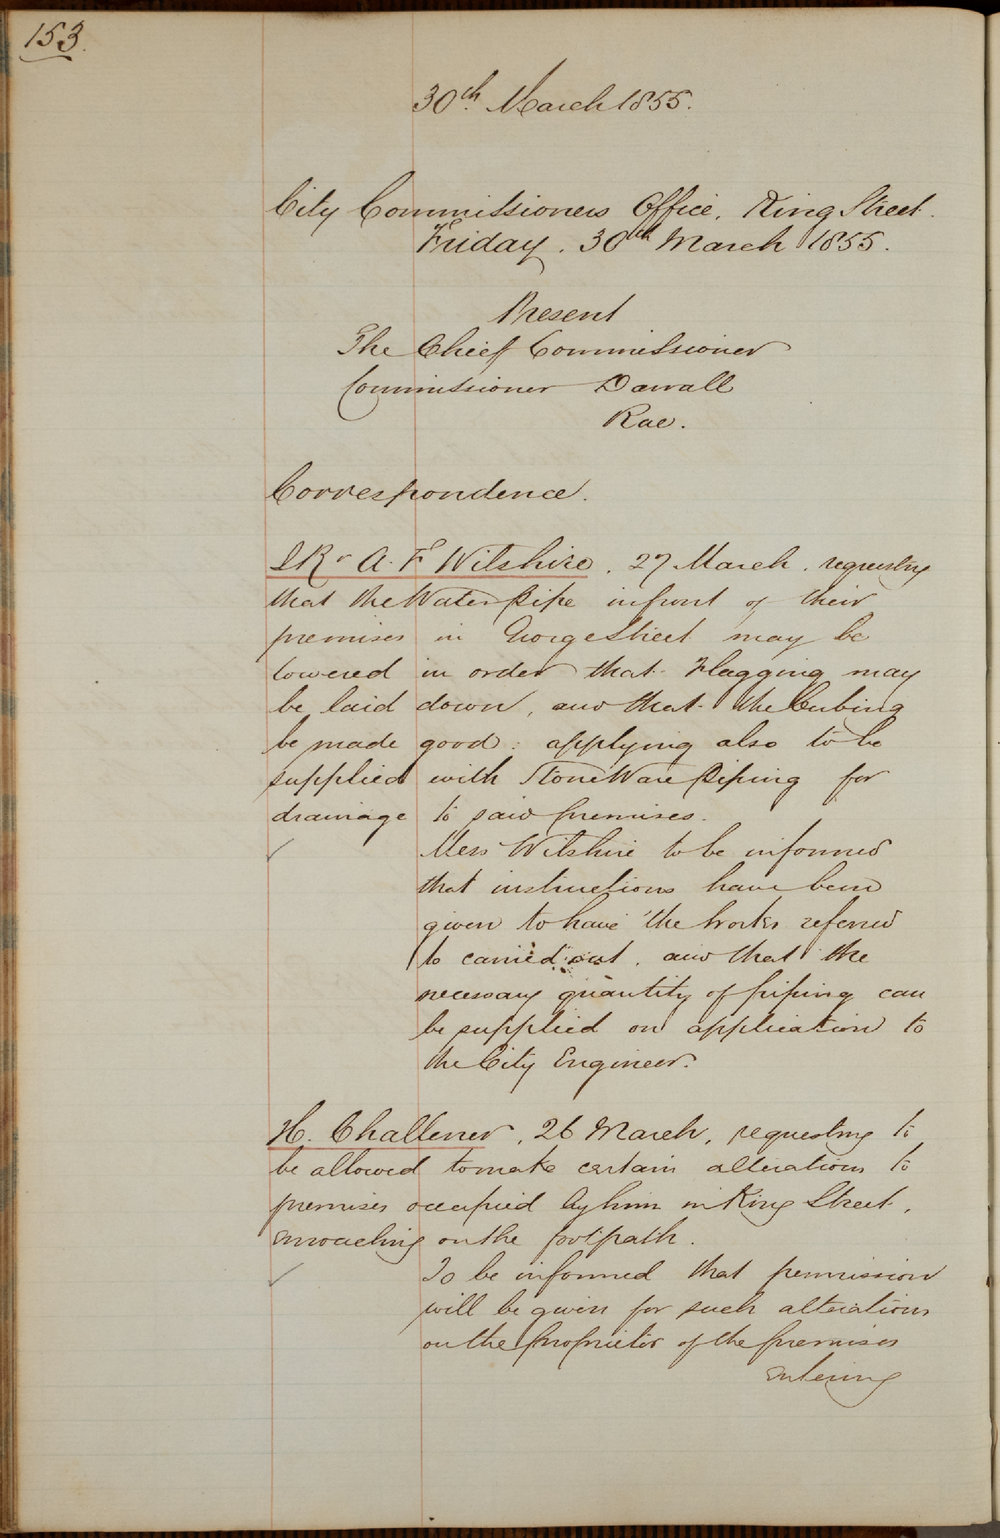 153.
30th March 1855.
City Commissioners Office, King Street.
Friday. 30th March 1855.
Present
The Chief Commissioner
Commissioner Darvall
Rae.
Correspondence.
J R & A. F Wilshire, 27 March. requesting
that the Water pipe infront of their
premises in George Street may be
lowered in order that Flagging may
be laid down, and that the Curbing
be made good: applying also to be
supplied with Stone Ware Piping for
drainage to said premises.
Mess Wilshire to be informed
that instructions have been
given to have the works referred
to carried out. and that the
necessary quantity of piping can
be supplied on application to
the City Engineer.
H. Challener, 26 March, requesting to
be allowed to make certain alterations to
premises occupied by him in King Street,
encroaching on the footpath.
To be informed that permission
will be given for such alterations
on the proprietor of the premises
entering